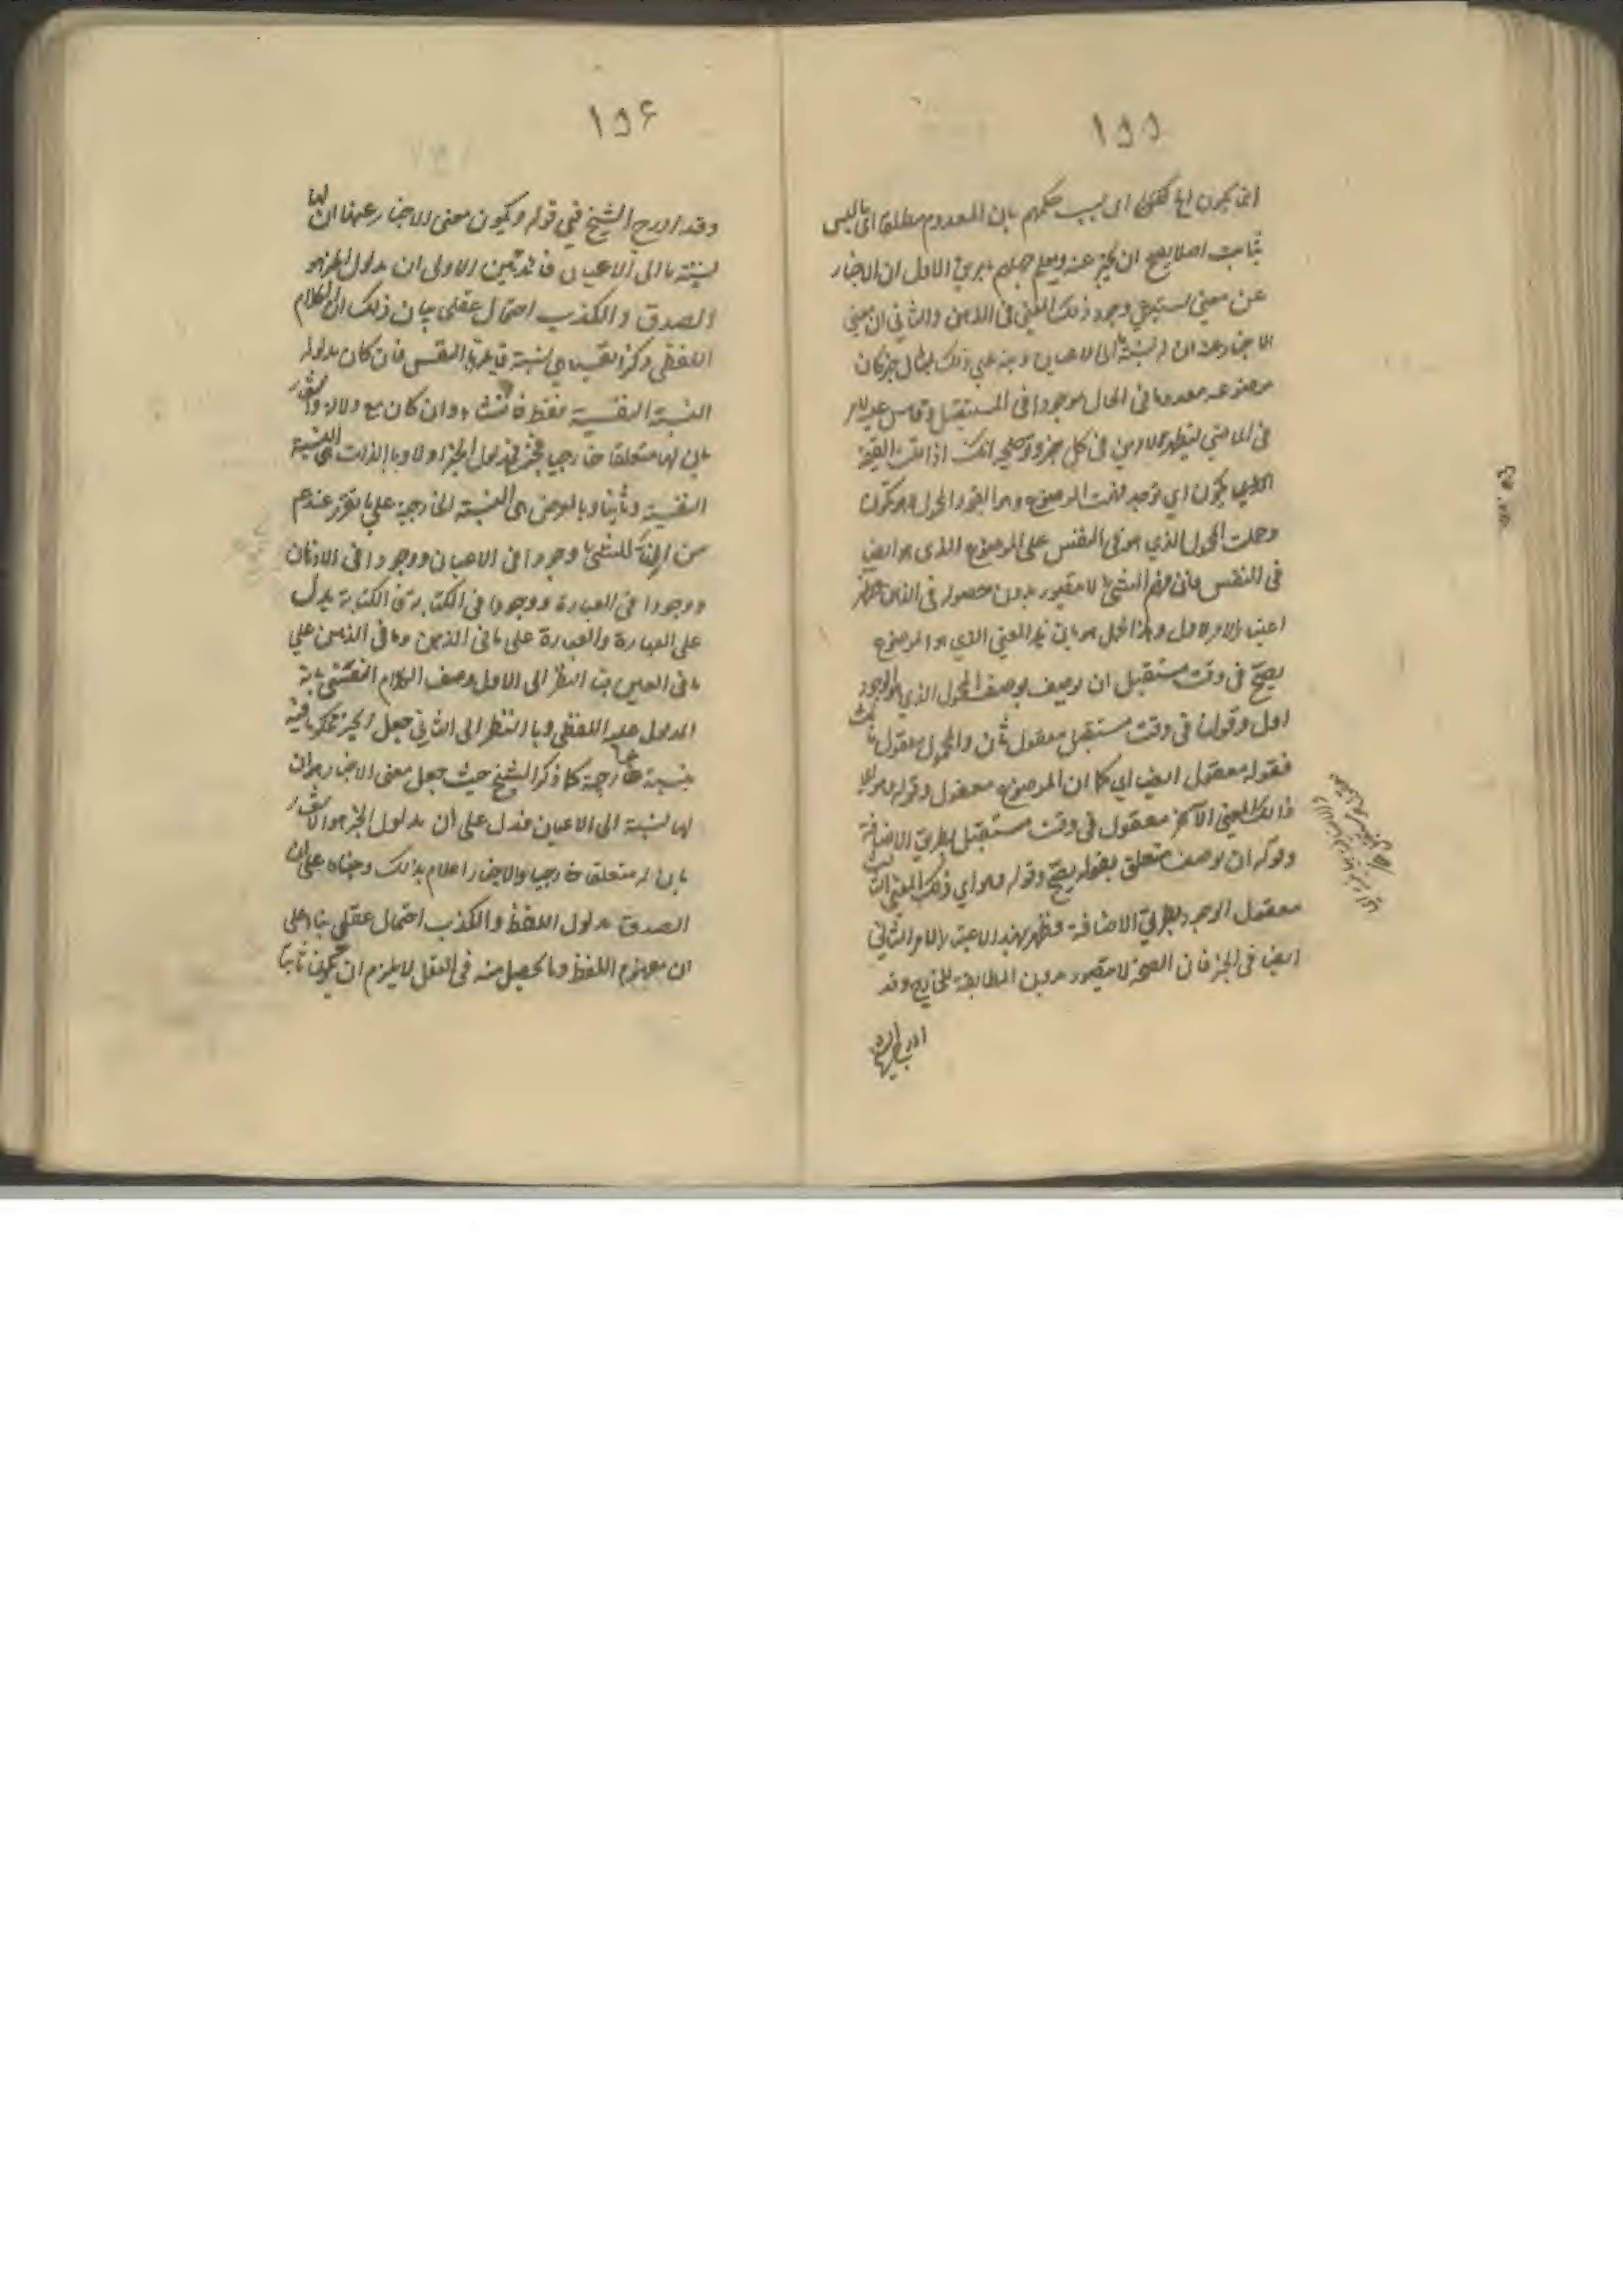 ١٥٥
انما يكون لها كفى اى بسبب حكمهم بان المعدوم مطلقا اى ما ليس
بثابت اصلا يصح ان يخبر عنه ويعلم جهلهم بامرين الاول ان الاخبار
عن معنى يستدعى وجود ذلك المعنى فى الذهن والثانى ان معنى
الاخبار عنه ان له نسبة الى الاعيان ونبه على ذلك بمثال جزئ كان
موضوعه معدوما فى الحال موجودا فى المستقبل وقاس عليه
فى الماضى ليظهر الامرين فى كل خبر وتوضيحه انك اذا قلت القيمة
يكون اى توجد فهمت الموضوع وهو القيمة والمحمول وهو يكون
وحملت المحمول الذي هو فى النفس على الموضوع الذى هو ايضا
فى النفس فان فهم الشئ لا يتصور بدون حصوله فى الذهن فظهر
اعتبار الامر الاول وهذا الحمل هو بان هذا المعنى الذي هو الموضوع
يصح فى وقت مستقبل ان يوصف بوصف المحمول الذي هو الوجود
اول وقولنا فى وقت مستقبل معقول ثان والمحمول معقول ثالث
فقوله معقول ايضا اي كما ان الموضوع معقول وقوله وهو
ذلك المعنى الآخر معقول فى وقت مستقبل بطريق الاضافة
وقوله ان يوصف متعلق بقوله يصح وقوله وهو اي ذلك المعنى الثالث
معقول الوجود بطريق الاضافة وظهر بهذا الاعتبار الامر الثانى
ايضا فى الخبر فان الصحة لا يتصور بدون المطابقة للخارج وقد
ادرج الشيخ
١٥٦
وقد ادرج الشيخ فى قوله ويكون معنى الاخبار عنها ان لها
نسبة ما الى الاعيان فائدتين الاولى ان مدلول الخبر هو
الصدق والكذب احتمال عقلى بيان ذلك ان الكلام
اللفظى ذكر نفسيا هى نسبة قائمة بالنفس فان كان مدلوله
النسبة النفسية فقط فانشاء وان كان مع دلالة واشعار
بان لها متعلقا خارجيا فخبر فمدلول الخبر اولا وبالذات هى النسبة
النفسية وثانيا وبالعرض هى النسبة الخارجية على ما تقرر عندهم
من ان للشئ وجودا فى الاعيان ووجودا فى الاذهان
ووجودا فى العبارة ووجودا فى الكتابة فالكتابة يدل
على العبارة والعبارة على ما فى الذهن وما فى الذهن على
ما فى العين فبالنظر الى الاول وصف الكلام النفسى بانه
المدلول عليه اللفظى وبالنظر الى الثانى جعل الخبر محكوما فيه
بنسبة خارجية كما ذكر الشيخ حيث جعل معنى الاخبار هو ان
لها نسبة الى الاعيان فدل على ان مدلول الخبر هو الاشعار
بان له متعلقا خارجيا والاخبار اعلام بذلك ومبناه على ان
الصدق مدلول اللفظ والكذب احتمال عقلى بناء على
ان مفهوم اللفظ وما يحصل منه فى العقل لا يلزم ان يكون ثابتا